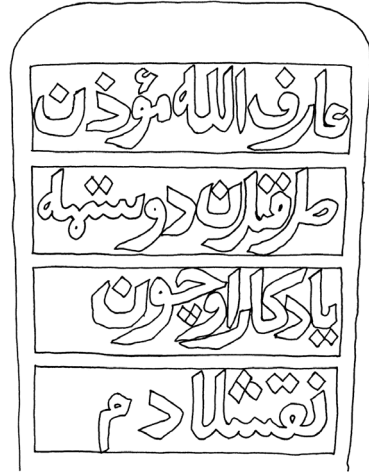 عارف الله مؤذن
طرفندن دوستهه
يادكار اوچون
نقشلادم